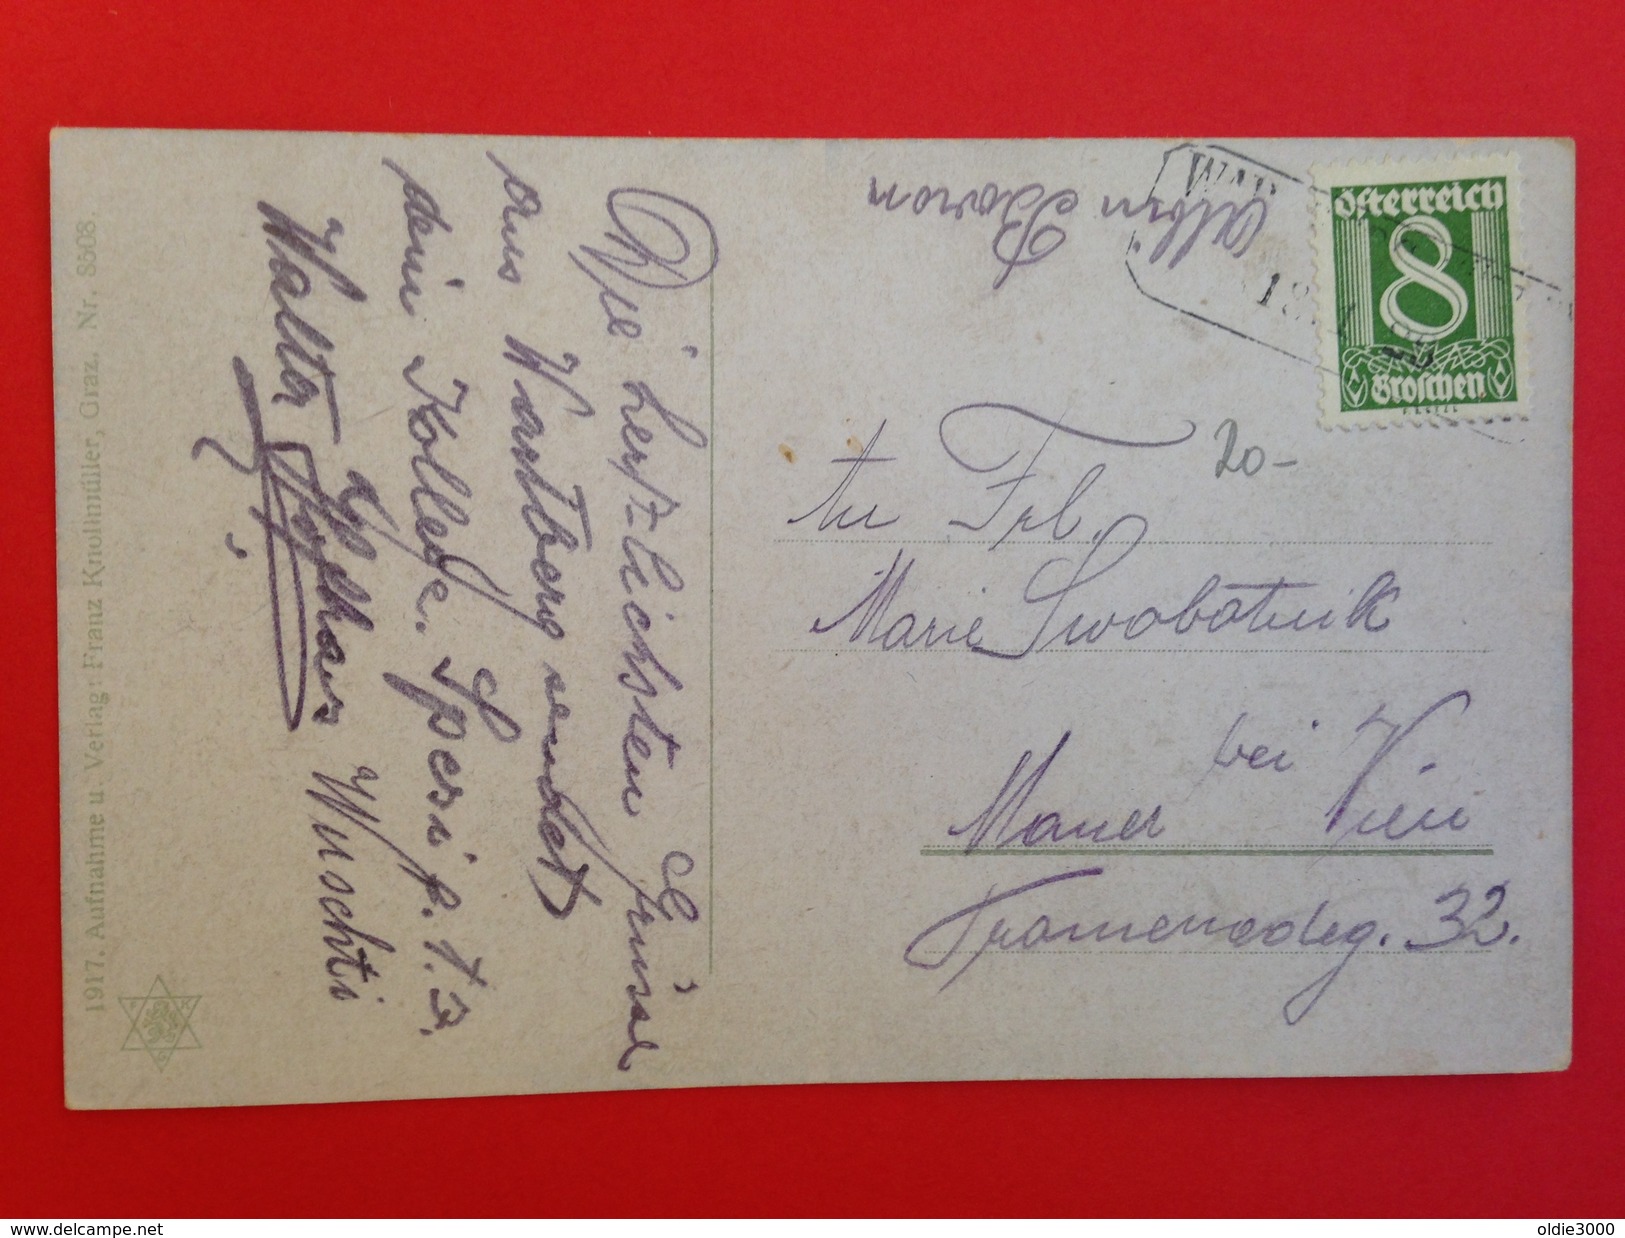 1917. Aufnahme u. Verlag: Franz Knollmüller, Graz. Nr. 8508.
Die herzlichsten Grüsse
aus Wartberg sendet
dein Kollege. Spesi p. t. z.
Walter Wuschti
Albin Baron
WAR
18.
Österreich
8
Groschen
20-
An Frl.
Marie Swobotnik
Mauer bei Wien
Tramenadeg. 32.
www.delcampe.net
oldie3000